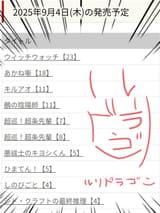 2025年9月4日(木)の発売予定
タイトル
ウィッチウォッチ【23】
あかね噺【18】
キルアオ【11】
鵺の陰陽師【11】
超巡！超条先輩【7】
超巡！超条先輩【8】
悪祓士のキヨシくん【5】
ひまてん！【5】
しのびごと【4】
・クラフトの最終推理【4】
ルリドラゴン
ルリドラゴン